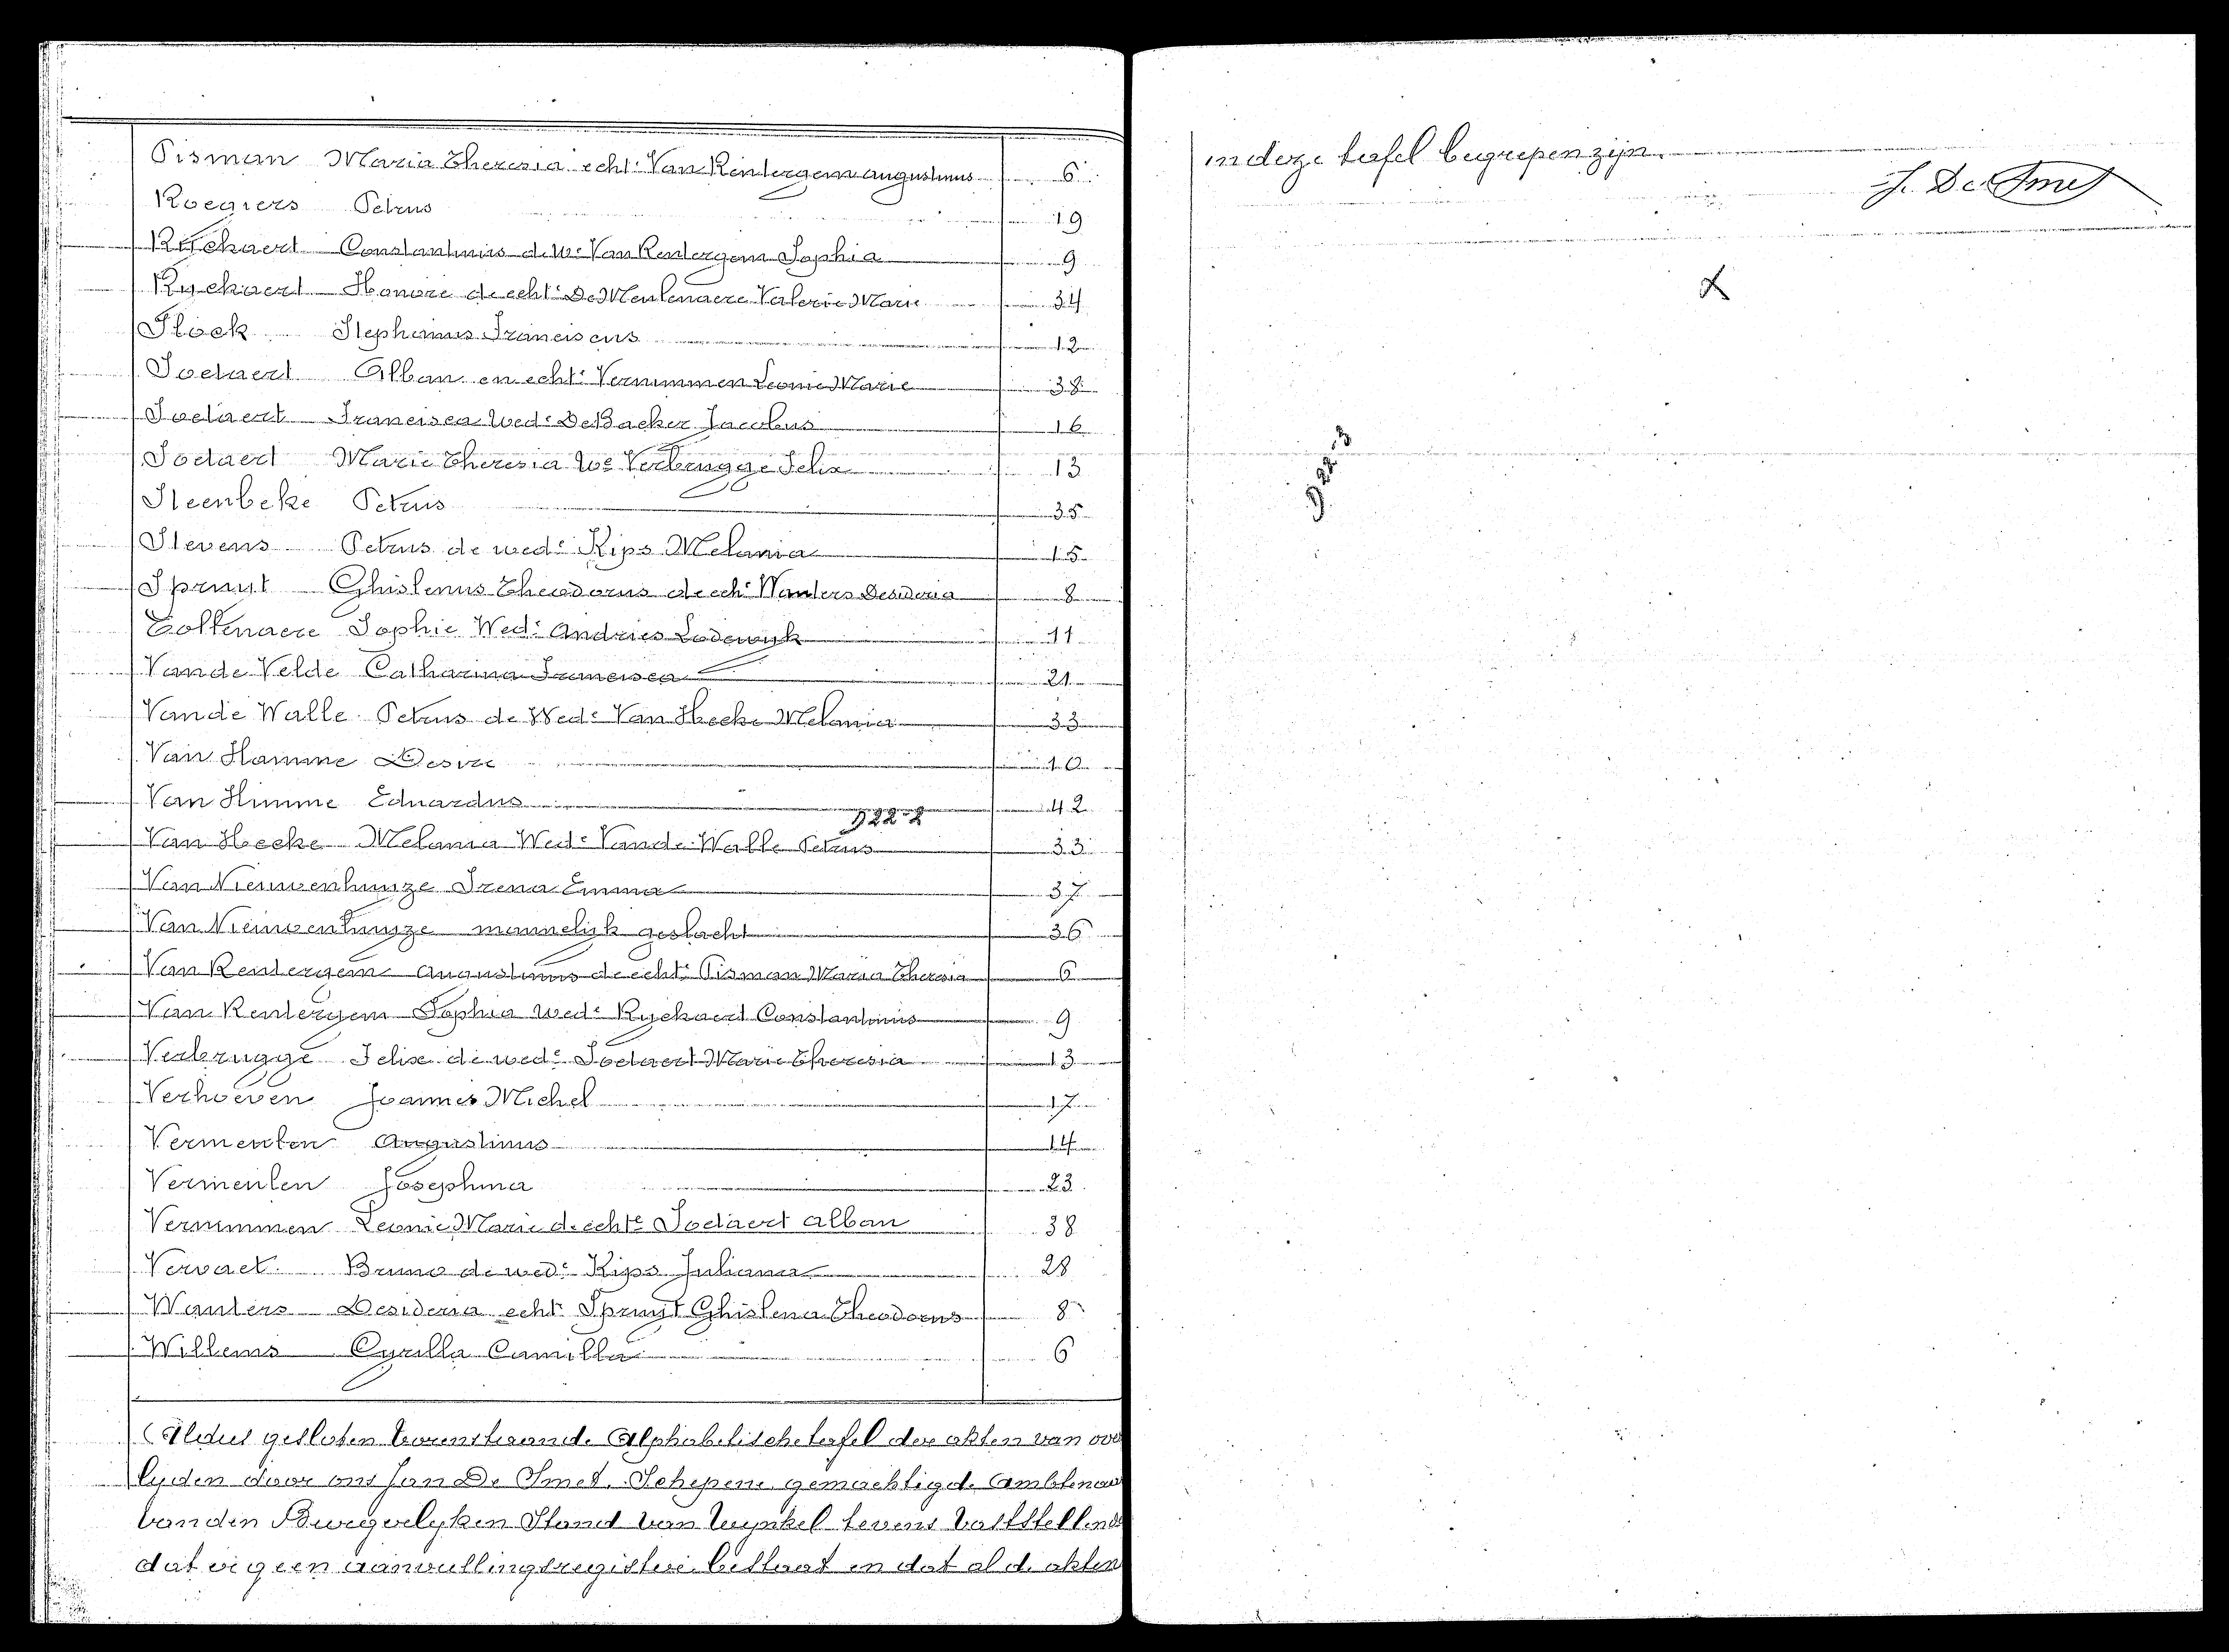 Pisman Maria Theresia echt: Van Rentergem Augustinus 6
Roegiers Petrus 19
Ryckaert Constantinus de We Van Rentergem Sophia 9
Ryckaert Honore de echt: De Meulenaere Valerie Marie 34
Stock Stephanus Franciscus 12
Soetaert Alban en echt: Vernimmen Leonie Marie 38
Soetaert Francisca Wed: De Backer Jacobus 16
Soetaert Marie Theresia We Verbrugge Felix 13
Steenbeke Petrus 35
Stevens Petrus de wed: Kips Melania 15
Spruyt Ghislenus Theodorus de ech: Wauters Desideria 8
Tollenaere Sophie Wed: Andries Lodewyk 11
Van de Velde Catharina Francisca 21
Van de Walle Petrus de Wed: Van Hecke Melania 33
Van Hamme Desire 10
Van Himme Eduardus 42
D22-2
Van Hecke Melania Wed: Van de Walle Petrus 33
Van Nieuwenhuyze Irena Emma 37
Van Nieuwenhuyze mannelijk geslacht 36
Van Rentergem Augustinus de echt: Pisman Maria Theresia 6
Van Rentergem Sophia wed: Ryckaert Constantinus 9
Verbrugge Felix de wed: Soetaert Marie Theresia 13
Verhoeven Joannes Michel 17
Vermeulen Augustinus 14
Vermeulen Josephina 23
Vernimmen Leonie Marie de echte Soetaert Alban 38
Vervaet Bruno de wed: Kips Juliana 28
Wauters Desideria echt: Spruyt Ghislena Theodorus 8
Willems Cyrilla Camilla 6
Aldus gesloten vorenstaande Alphabetische tafel der akten van over
lyden door ons Jan De Smet, Schepene gemachtigde Ambtenaar
van den Burgerlyken Stand van Wynkel tevens vaststellende
dat er geen aanvullingsregister bestaat en dat al de akten
in deze tafel begrepen zijn.
J. De Smet
D22-3